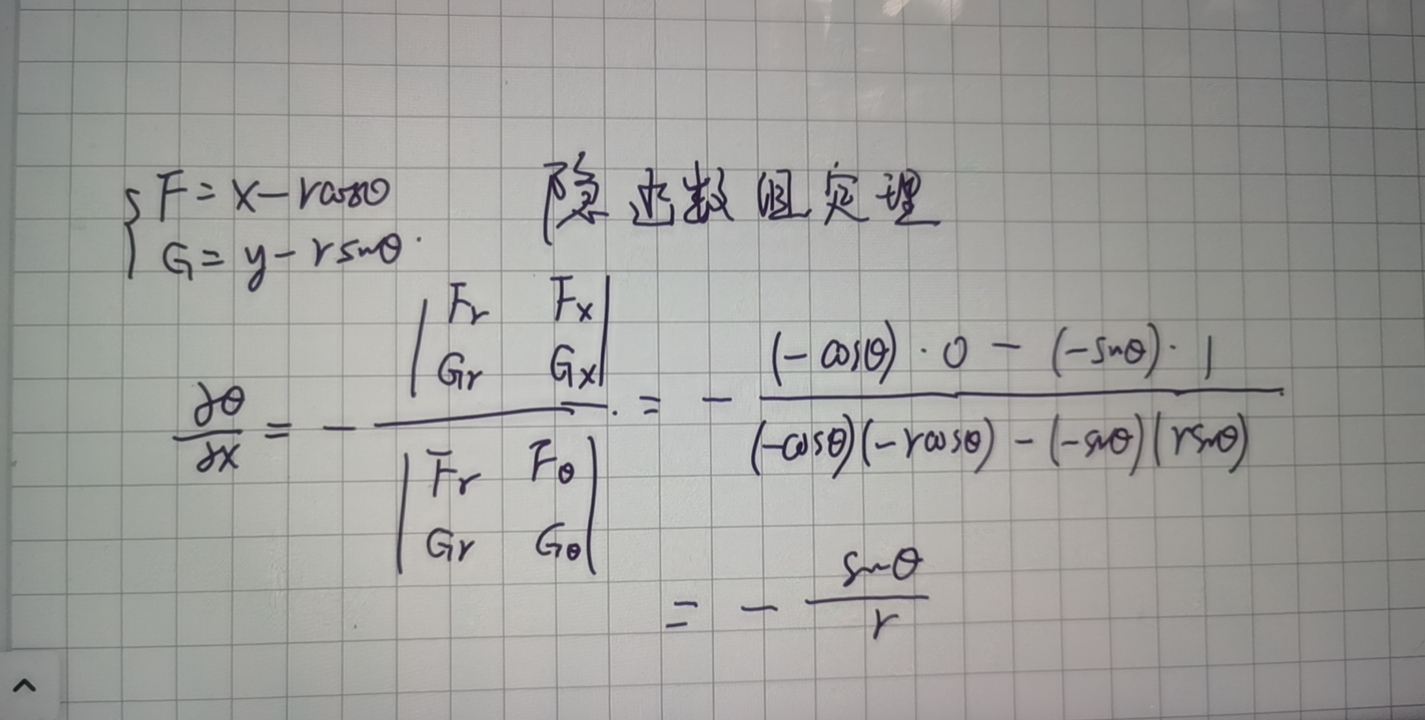 { F = x - rcosθ
G = y - rsinθ.
隐函数组定理
∂θ/∂x = - |Fr Fx; Gr Gx| / |Fr Fθ; Gr Gθ| = - ((-cosθ)·0 - (-sinθ)·1) / ((-cosθ)(-rcosθ) - (-sinθ)(rsinθ))
= - sinθ/r